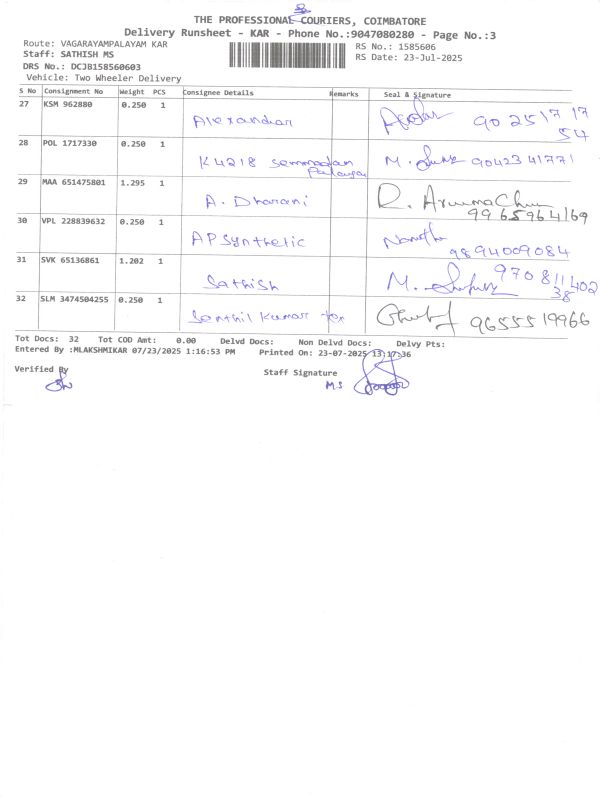 THE PROFESSIONAL COURIERS, COIMBATORE
Delivery Runsheet - KAR - Phone No.:9047080280 - Page No.:3
Route: VAGARAYAMPALAYAM KAR
RS No.: 1585606
Staff: SATHISH MS
RS Date: 23-Jul-2025
DRS No.: DCJB158560603
Vehicle: Two Wheeler Delivery
S No Consignment No Weight PCS Consignee Details Remarks Seal & Signature
27 KSM 962880 0.250 1
Alexandar 90 2517 17
54
28 POL 1717330 0.250 1
K4218 Semmadan M. 90423 41771
Palayam
29 MAA 651475801 1.295 1
A. Dharani R. Arunachu
9965964169
30 VPL 228839632 0.250 1
AP Synthetic
9894009084
31 SVK 65136861 1.202 1
Sathish M. 970 811402
38
32 SLM 3474504255 0.250 1
Senthil Kumar 9655519966
Tot Docs: 32 Tot COD Amt: 0.00 Delvd Docs: Non Delvd Docs: Delvy Pts:
Entered By :MLAKSHMIKAR 07/23/2025 1:16:53 PM Printed On: 23-07-2025 13:17:36
Verified By
Staff Signature
MS